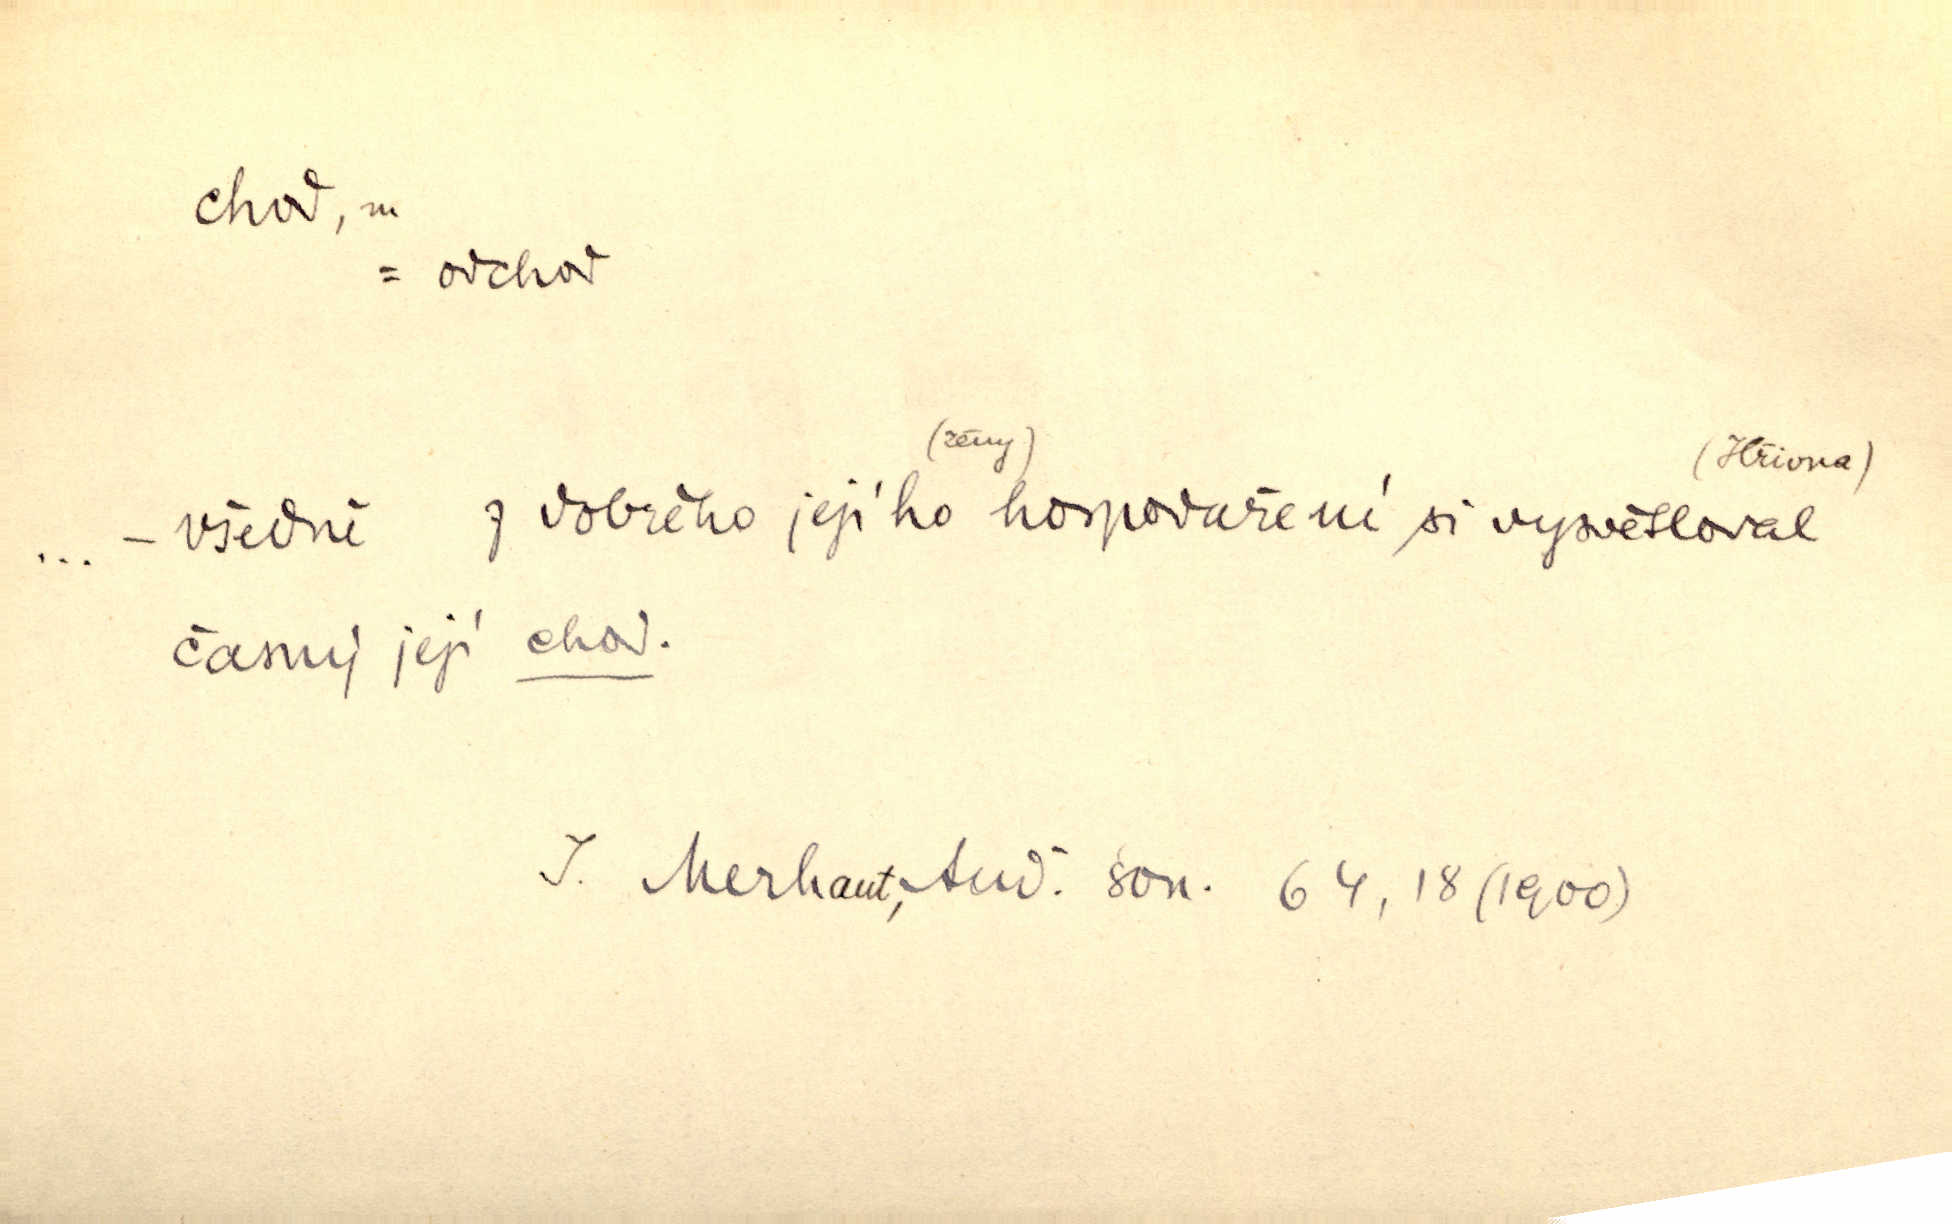 chod, m
= odchod
(ženy) (Hřiona)
... – všedně z dobrého jejího hospodaření si vysvětloval
časný její chod.
J. Merhaut, And. son. 64, 18 (1900)